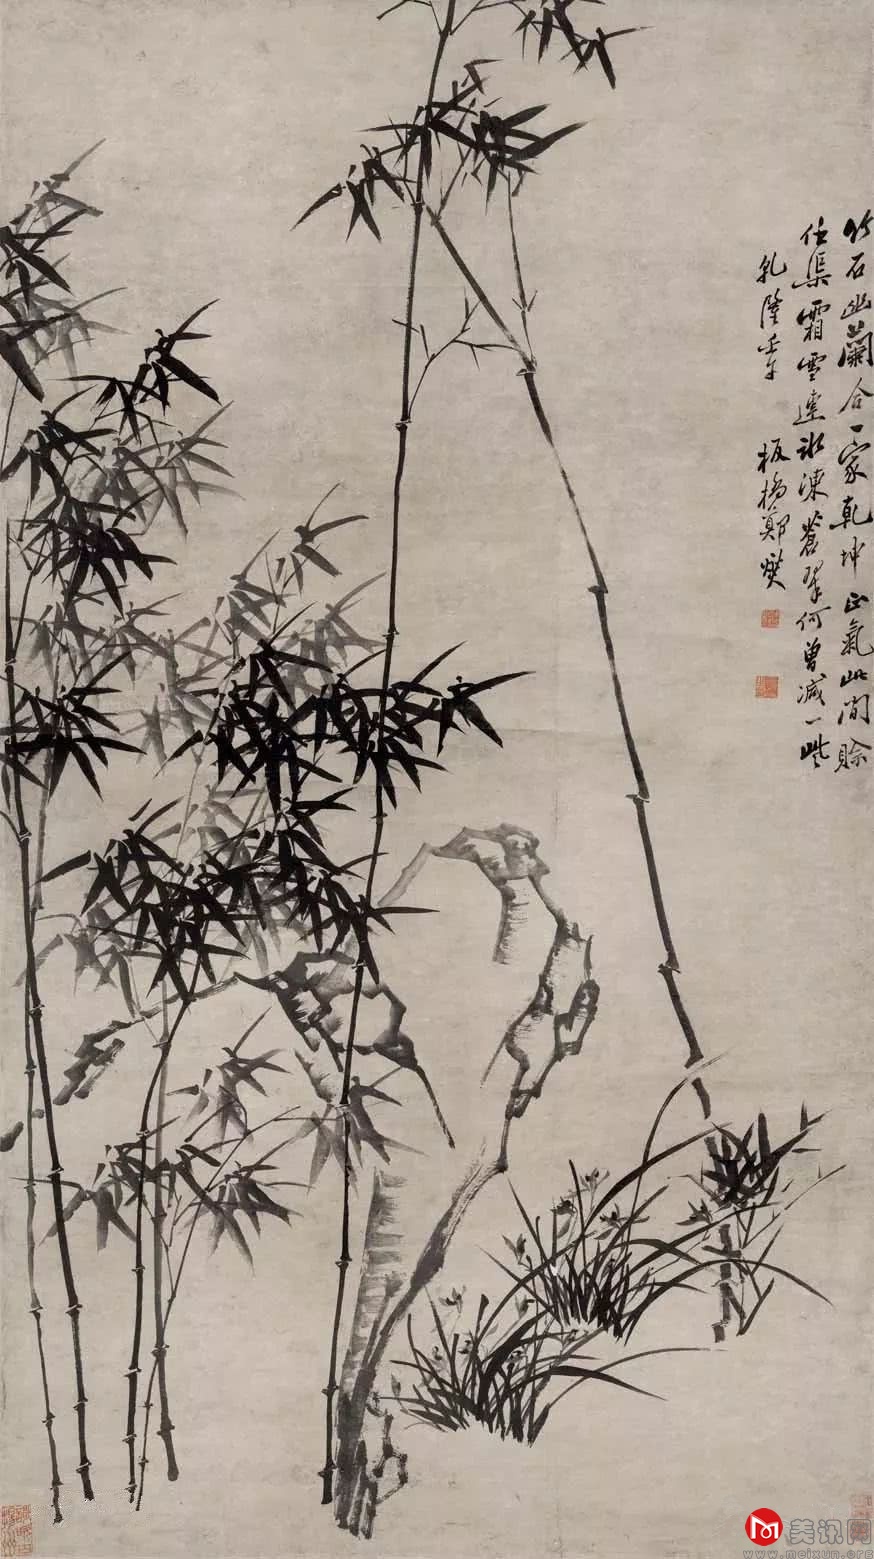 竹石幽蘭合一家乾坤正氣此間賒
任渠霜雪連冰凍蒼翠何曾減一些
乾隆壬午
板橋鄭燮
美讯网
www.meixun.org